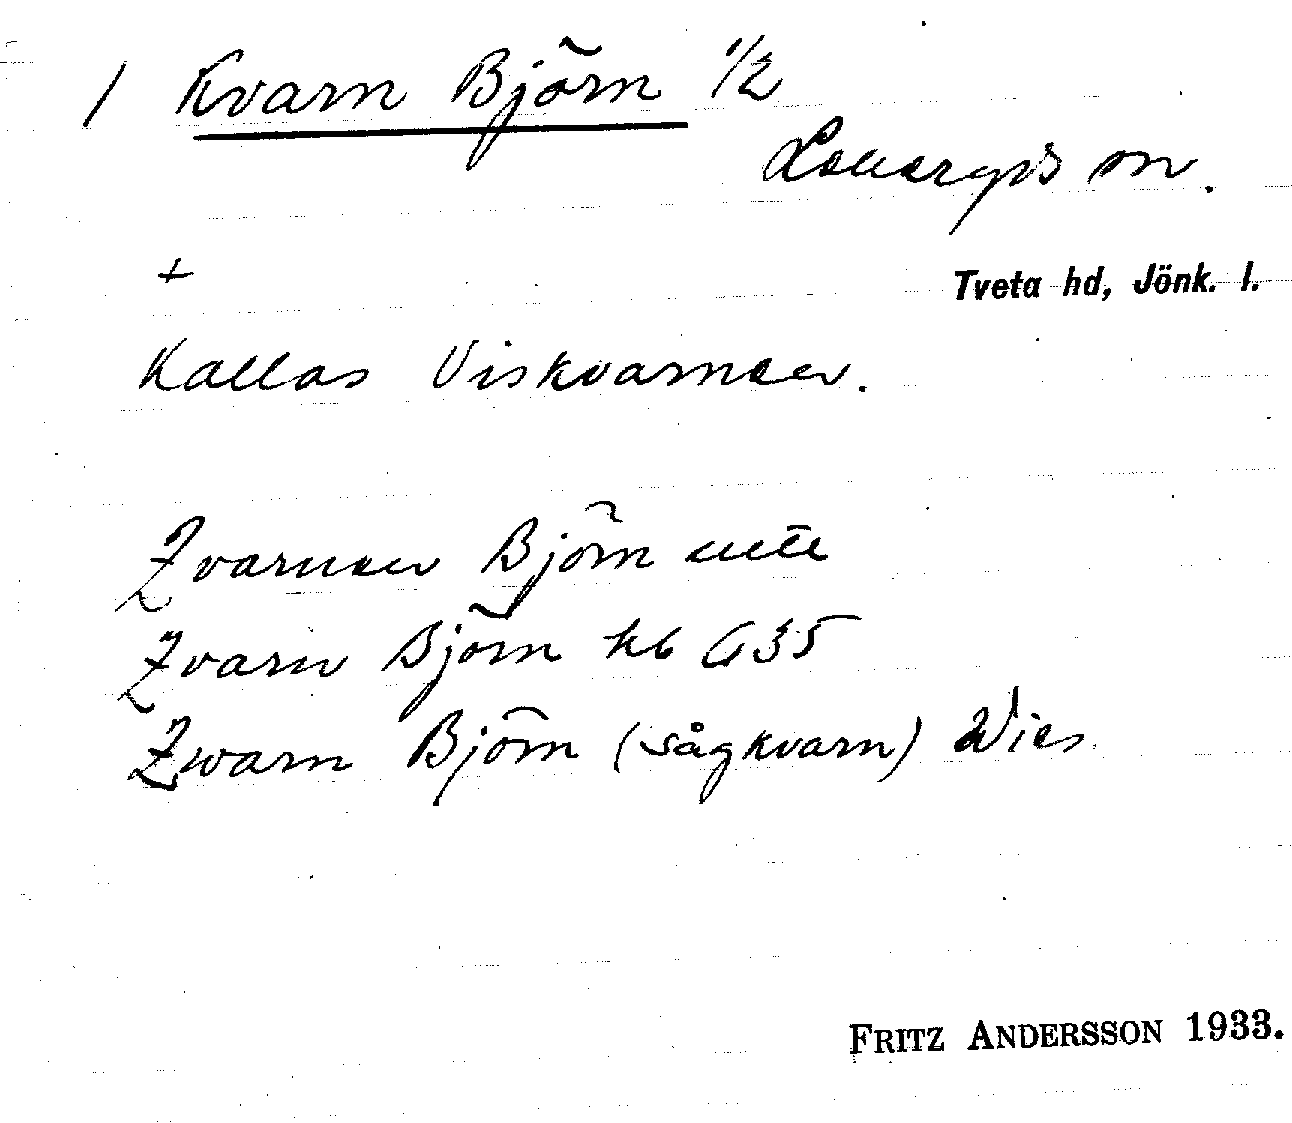 1 Kvarn Björn 1/2
Lekeryds sn.
+
Tveta hd, Jönk. l.
Kallas Viskvarnen.
Qvarnen Björn
Qvarn Björn kb G35
Qwarn Björn (sågkvarn) Wies
FRITZ ANDERSSON 1933.